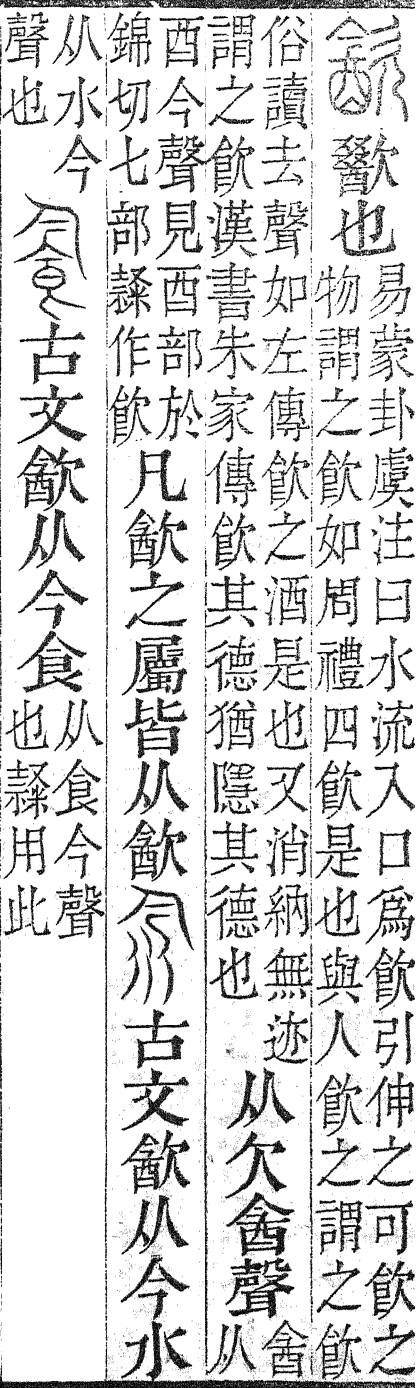 㱃歠也易蒙卦虞注曰水流入口爲飮引伸之可飮之物謂之飮如周禮四飮是也與人飮之謂之飮
俗讀去聲如左傳飮之酒是也又消納無迹謂之飮漢書朱家傳飮其德猶隱其德也从欠酓聲酓从
酉今聲見酉部於錦切七部隸作飮凡㱃之屬皆从㱃古文㱃从今水
从水今聲也古文㱃从今食从食今聲也隸用此